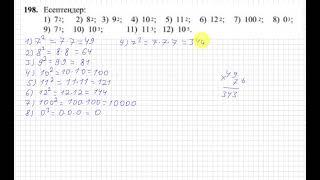 198. Есептеңдер:
1) 7²; 2) 8²; 3) 9²; 4) 10²; 5) 11²; 6) 12²; 7) 100²; 8) 0²;
9) 7³; 10) 10³; 11) 11³; 12) 10⁵.
1) 7² = 7·7 = 49 9) 7³ = 7·7·7 = 344
2) 8² = 8·8 = 64
3) 9² = 9·9 = 81
4) 10² = 10·10 = 100
5) 11² = 11·11 = 121
6) 12² = 12·12 = 144
7) 100² = 100·100 = 10000
8) 0² = 0·0 = 0
6
×49
7
343